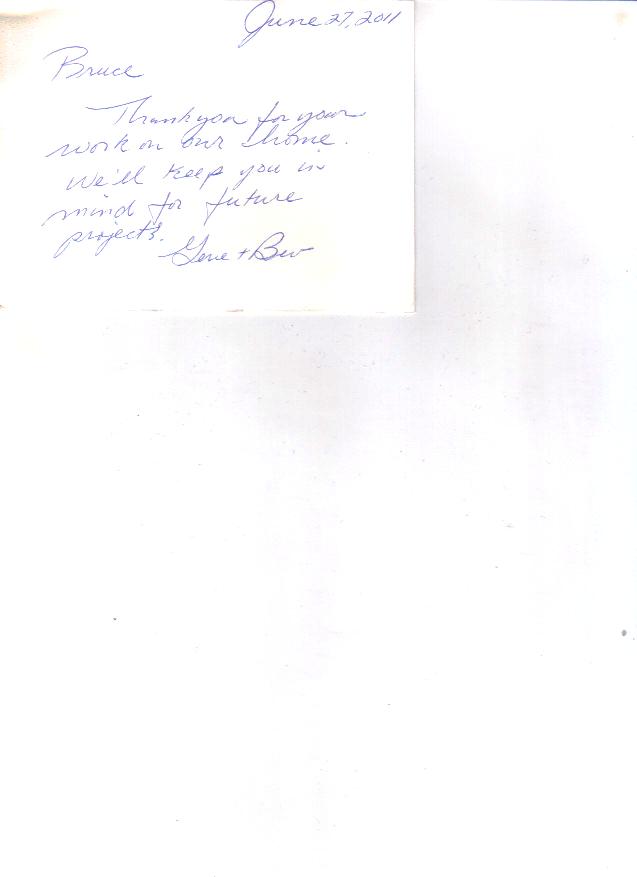 June 27, 2011
Bruce
Thank you for your
work on our home.
We'll keep you in
mind for future
projects.
Gene + Bev